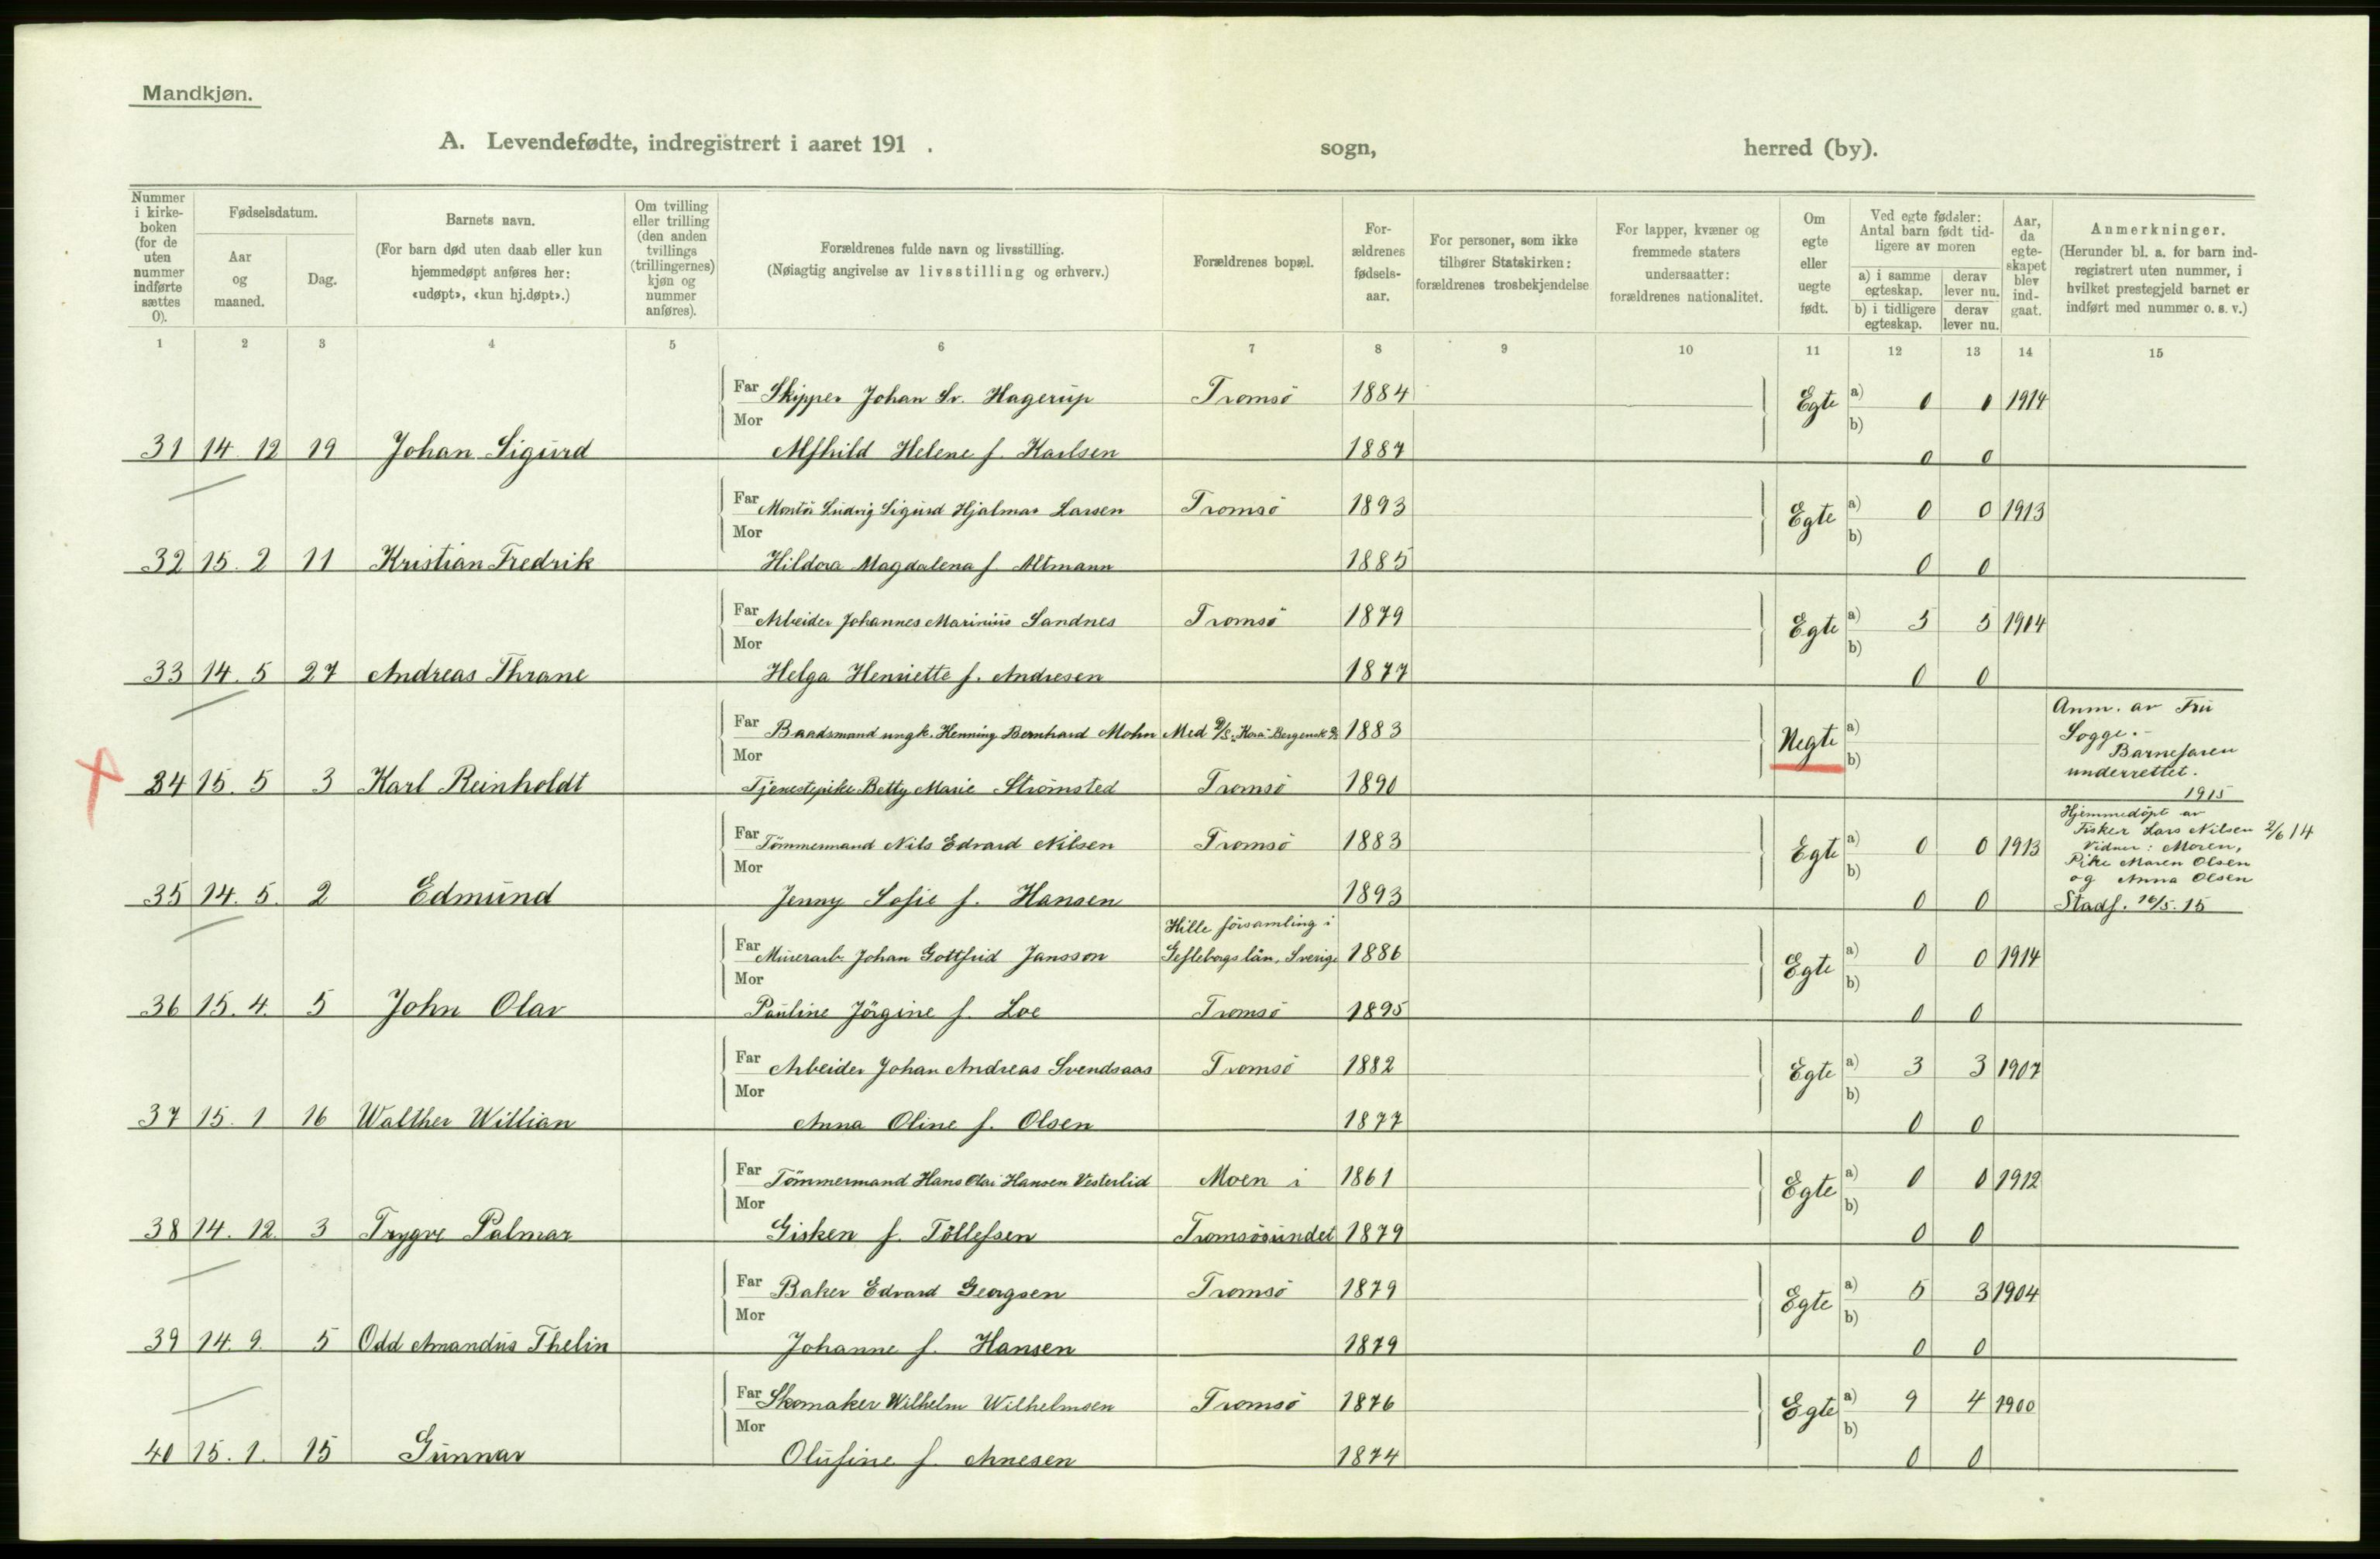 Mandkjøn.
A. Levendefødte, indregistrert i aaret 191 . sogn, herred (by).
Nummer i kirke-boken (for de uten nummer indførte sættes 0).
Fødselsdatum.
Aar og maaned.
Dag.
Barnets navn.
(For barn død uten daab eller kun hjemmedøpt anføres her: «udøpt», «kun hj.døpt».)
Om tvilling eller trilling (den anden tvillings (trillingernes) kjøn og nummer anføres).
Forældrenes fulde navn og livsstilling.
(Nøiagtig angivelse av livsstilling og erhverv.)
Forældrenes bopæl.
For-ældrenes fødsels-aar.
For personer, som ikke tilhører Statskirken: forældrenes trosbekjendelse
For lapper, kvæner og fremmede staters undersaatter: forældrenes nationalitet.
Om egte eller uegte født.
Ved egte fødsler: Antal barn født tid-ligere av moren
a) i samme egteskap. derav lever nu.
b) i tidligere egteskap. derav lever nu.
Aar, da egte-skapet blev ind-gaat.
Anmerkninger.
(Herunder bl. a. for barn ind-registrert uten nummer, i hvilket prestegjeld barnet er indført med nummer o. s. v.)
1 2 3 4 5 6 7 8 9 10 11 12 13 14 15
Far Skipper Johan Sv. Hagerup Tromsö 1884 Egte a) 0 0 1914
Mor b)
31 14 12 19 Johan Sigurd Alfhild Helene f. Karlsen 1887 0 0
Far Montör Ludvig Sigurd Hjalmar Larsen Tromsö 1893 Egte a) 0 0 1913
Mor b)
32 15. 2 11 Kristian Fredrik Hildora Magdalena f. Altmann 1885 0 0
Far Arbeider Johannes Marinius Sandnes Tromsö 1879 Egte a) 5 5 1904
Mor b)
33 14. 5 27 Andreas Thrane Helga Henriette f. Andresen 1877 0 0
Far Baadsmand ungk. Henning Bernhard Mohn Med D/S. "Kora" Bergensk 1883 Uegte a)
Mor b)
34 15. 5 3 Karl Reinholdt Tjenestepike Betty Marie Strömsted Tromsö 1890
Anm. av Fru
Sogge.-
Barnefaren
underrettet.
1915
Far Tömmermand Nils Edvard Nilsen Tromsö 1883 Egte a) 0 0 1913
Mor b)
35 14. 5. 2 Edmund Jenny Sofie f. Hansen 1893 0 0
Hjemmedöpt av
Fisker Lars Nilsen 2/6 14
Vidner: Moren,
Pike Maren Olsen
og Anna Olsen
Stadf. 16/5. 15
Hille församling i
Far Murerarb. Johan Gottfrid Jansson Gefleborgs län, Sverige 1886 Egte a) 0 0 1914
Mor b)
36 15. 4. 5 John Olav Pauline Jörgine f. Loe Tromsö 1895 0 0
Far Arbeider Johan Andreas Svendsaas Tromsö 1882 Egte a) 3 3 1907
Mor b)
37 15. 1 16 Walther Willian Anna Oline f. Olsen 1877 0 0
Far Tömmermand Hans Olai Hansen Vesterlid Moen i 1861 Egte a) 0 0 1912
Mor b)
38 14. 12. 3 Trygve Palmar Gisken f. Töllefsen Tromsösundet 1879 0 0
Far Baker Edvard Georgsen Tromsö 1879 Egte a) 5 3 1904
Mor b)
39 14. 9. 5 Odd Amandus Thelin Johanne f. Hansen 1879 0 0
Far Skomaker Wilhelm Wilhelmsen Tromsö 1876 Egte a) 9 4 1900
Mor b)
40 15. 1. 15 Gunnar Olufine f. Arnesen 1874 0 0